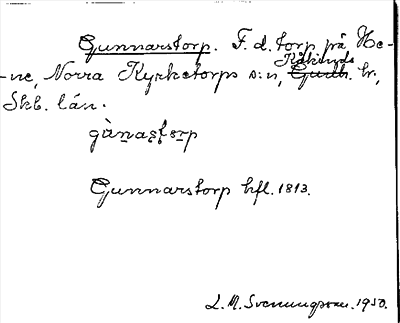 Gunnarstorp. F. d. torp på He-
-ne, Norra Kyrketorps s:n, Kåkinds hr,
Skb. län.
Gunnarstorp hfl. 1813.
L. M. Svenungsson. 1930.